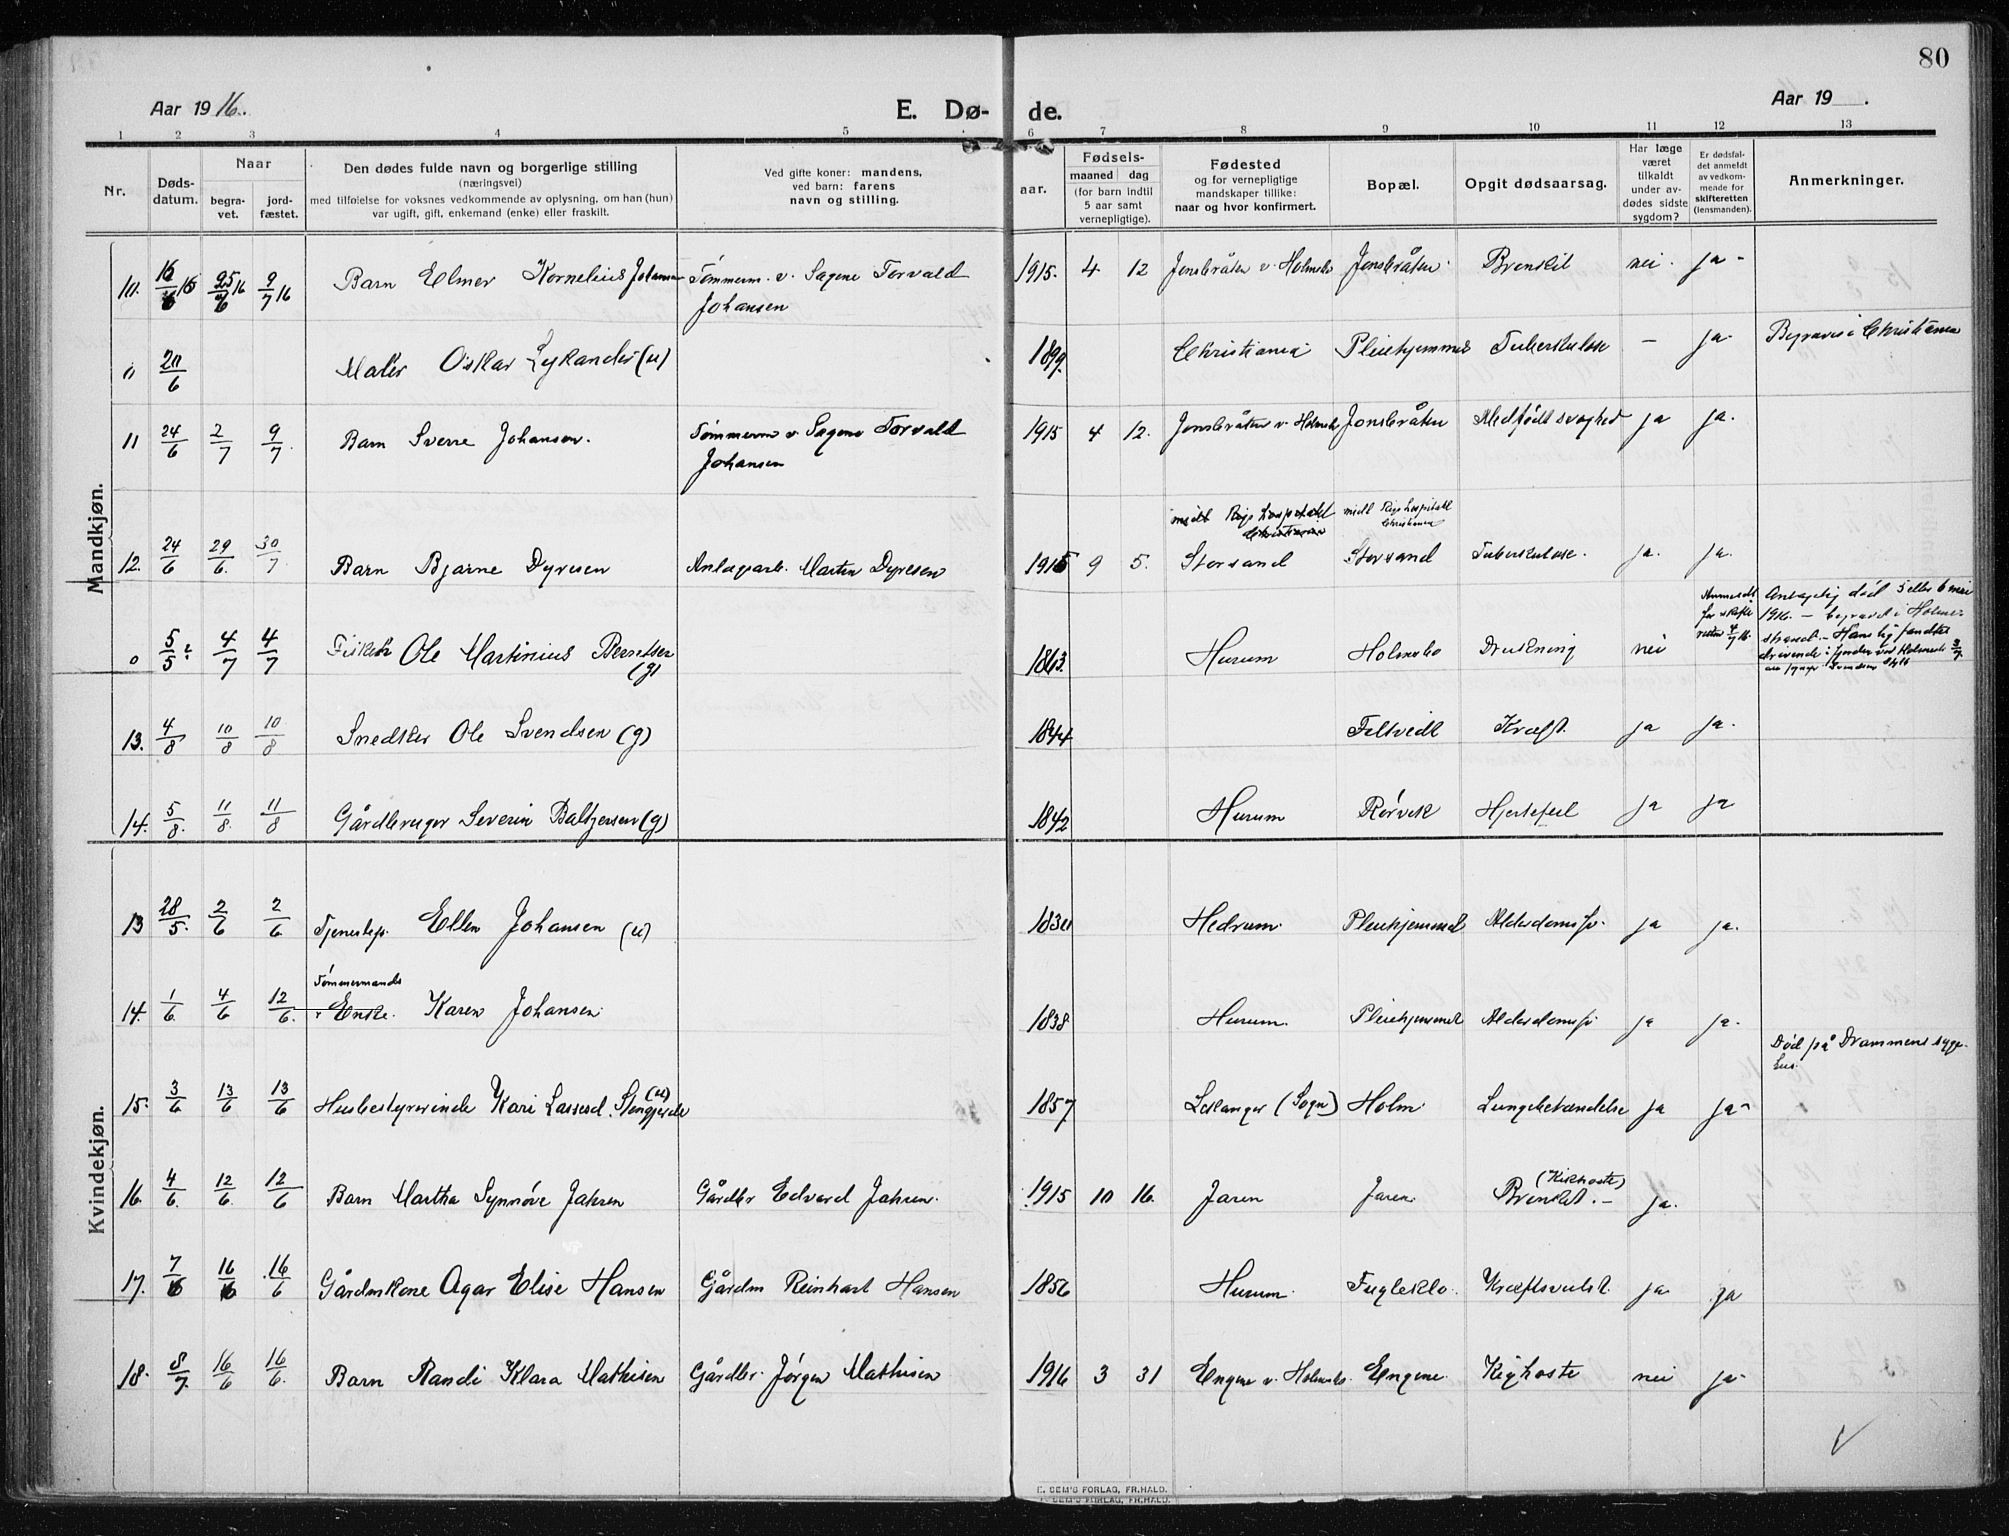 80
Aar 1916.
E. Dø- de.
Aar 19 .
1 2 3 4 5 6 7 8 9 10 11 12 13
Nr.
Døds-
datum.
Naar
begra-
vet.
jord-
fæstet.
Den dødes fulde navn og borgerlige stilling
(næringsvei)
med tilføielse for voksnes vedkommende av oplysning, om han (hun)
var ugift, gift, enkemand (enke) eller fraskilt.
Ved gifte koner: mandens,
ved barn: farens
navn og stilling.
aar.
Fødsels-
maaned dag
(for barn indtil
5 aar samt
vernepligtige).
Fødested
og for vernepligtige
mandskaper tillike:
naar og hvor konfirmert.
Bopæl.
Opgit dødsaarsag.
Har læge
været
tilkaldt
under av-
dødes sidste
sygdom?
Er dødsfal-
det anmeldt
av vedkom-
mende for
skifteretten
(lensmanden).
Anmerkninger.
Mandkjøn.
10. 16/6 16 25/6 16 9/7 16 Barn Elmer Kornelius Johansen Tømmerm. v. Sagene Torvald 1915. 4 12 Jonsbråten v. Holmsbo Jonsbråten Bronkit nei. ja -
Johansen
0 20/6 Maler Oskar Lykander (u) 1899. Christiania Pleiehjemmet Tuberkulose - ja. Begraves i Christiania
11 24/6 2/7 9/7. Barn Sverre Johansen. Tømmerm v. Sagene Torvald 1915 4 12. Jonsbråten v. Holmsbo Jonsbråten Medfødt svaghed ja ja.
Johansen
midl Rigshospitalet midl Rigshospitalet
Christiania Christiania
12. 24/6 29/6. 30/7 Barn Bjarne Dyresen Anlægsarb. Martin Dyresen 1915 9 5. Storsand Storsand Tuberkulose. ja. ja.
0 5/5? 4/7 4/7 Fisker Ole Martinius Berntsen (g) 1863. Hurum Holmsbo Drukning nei Anmeldt for skifteretten 4/7 16. Antagelig død 5 eller 6 mai
1916. - begravet i Holme-
strand. - Hans lig fandtes
drivende i fjorden ved Holmestr.
13. 4/8 10/8 10/8 Snedker Ole Svendsen (g) 1844 Filtvedt Kræft. ja ja.
14. 5/8. 11/8. 11/8 Gårdbruger Severin Baltzersen (g) 1842 Hurum Rørvik Hjertefeil ja ja
Kvindekjøn.
13 28/5. 2/6 2/6 Tjenestep. Ellen Johansen (u) 1830 Hedrum. Pleiehjemmet Alderdomssv. ja ja.
Tømmermands
14. 1/6. 4/6 12/6. Enke. Karen Johansen. 1838 Hurum. Pleiehjemmet Alderdomssv ja ja.
Død på Drammens syge-
hus.
15. 3/6 13/6 13/6 Husbestyrerinde Kari Lassesd. Stengjerde (u) 1857 Leikanger (Sogn) Holm. Lungebetændelse ja ja -
16. 4/6. 12/6. 12/6 Barn Martha Synnøve Jahren Gårdbr Edvard Jahren. 1915 10 16. Jaren Jaren. (Kikhoste) Bronkit. - ja.
17. 7/6 16/6 16/6 Gårdmkone Agar Elise Hansen Gårdm Reinhart Hansen 1856 Hurum. Fugleklo. Kræftsvulst. ja ja
18. 8/7. 16/6 16/6. Barn Randi Klara Mathisen Gårdbr. Jørgen Mathisen 1916 3 31 Engene v. Holmsbo. Engene. Kighoste nei ja -
E. SEM'S FORLAG, FR.HALD.
E. SEM'S FORLAG, FR.HALD.